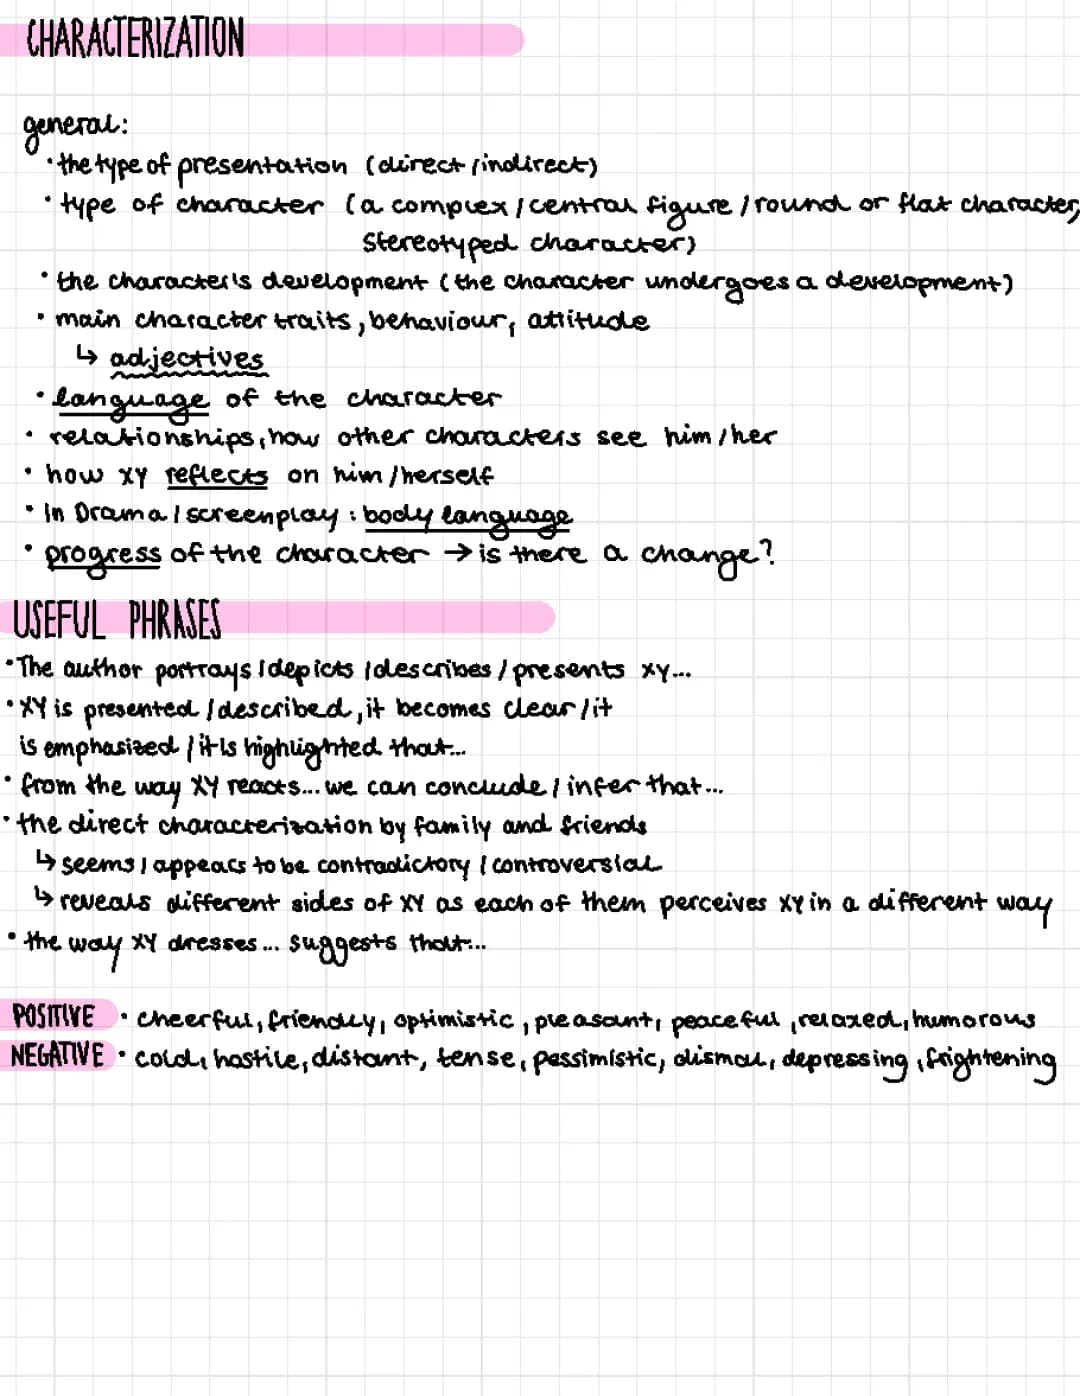 CHARACTERIZATION
general:
• the type of presentation (direct/indirect)
• type of character (a complex/central figure/round or flat character,
stereotyped character)
• the character's development (the character undergoes a development)
• main character traits, behaviour, attitude
↳ adjectives
• language of the character
• relationships, how other characters see him/her
• how XY reflects on him/herself
• In Drama/screenplay: body language
• progress of the character → is there a change?
USEFUL PHRASES
• The author portrays/depicts/describes/presents XY...
• XY is presented/described, it becomes clear/it
is emphasized/it is highlighted that...
• from the way XY reacts... we can conclude/infer that...
• the direct characterization by family and friends
↳ seems/appears to be contradictory/controversial
↳ reveals different sides of XY as each of them perceives XY in a different way
• the way XY dresses... suggests that...
POSITIVE • cheerful, friendly, optimistic, pleasant, peaceful, relaxed, humorous
NEGATIVE • cold, hostile, distant, tense, pessimistic, dismal, depressing, frightening